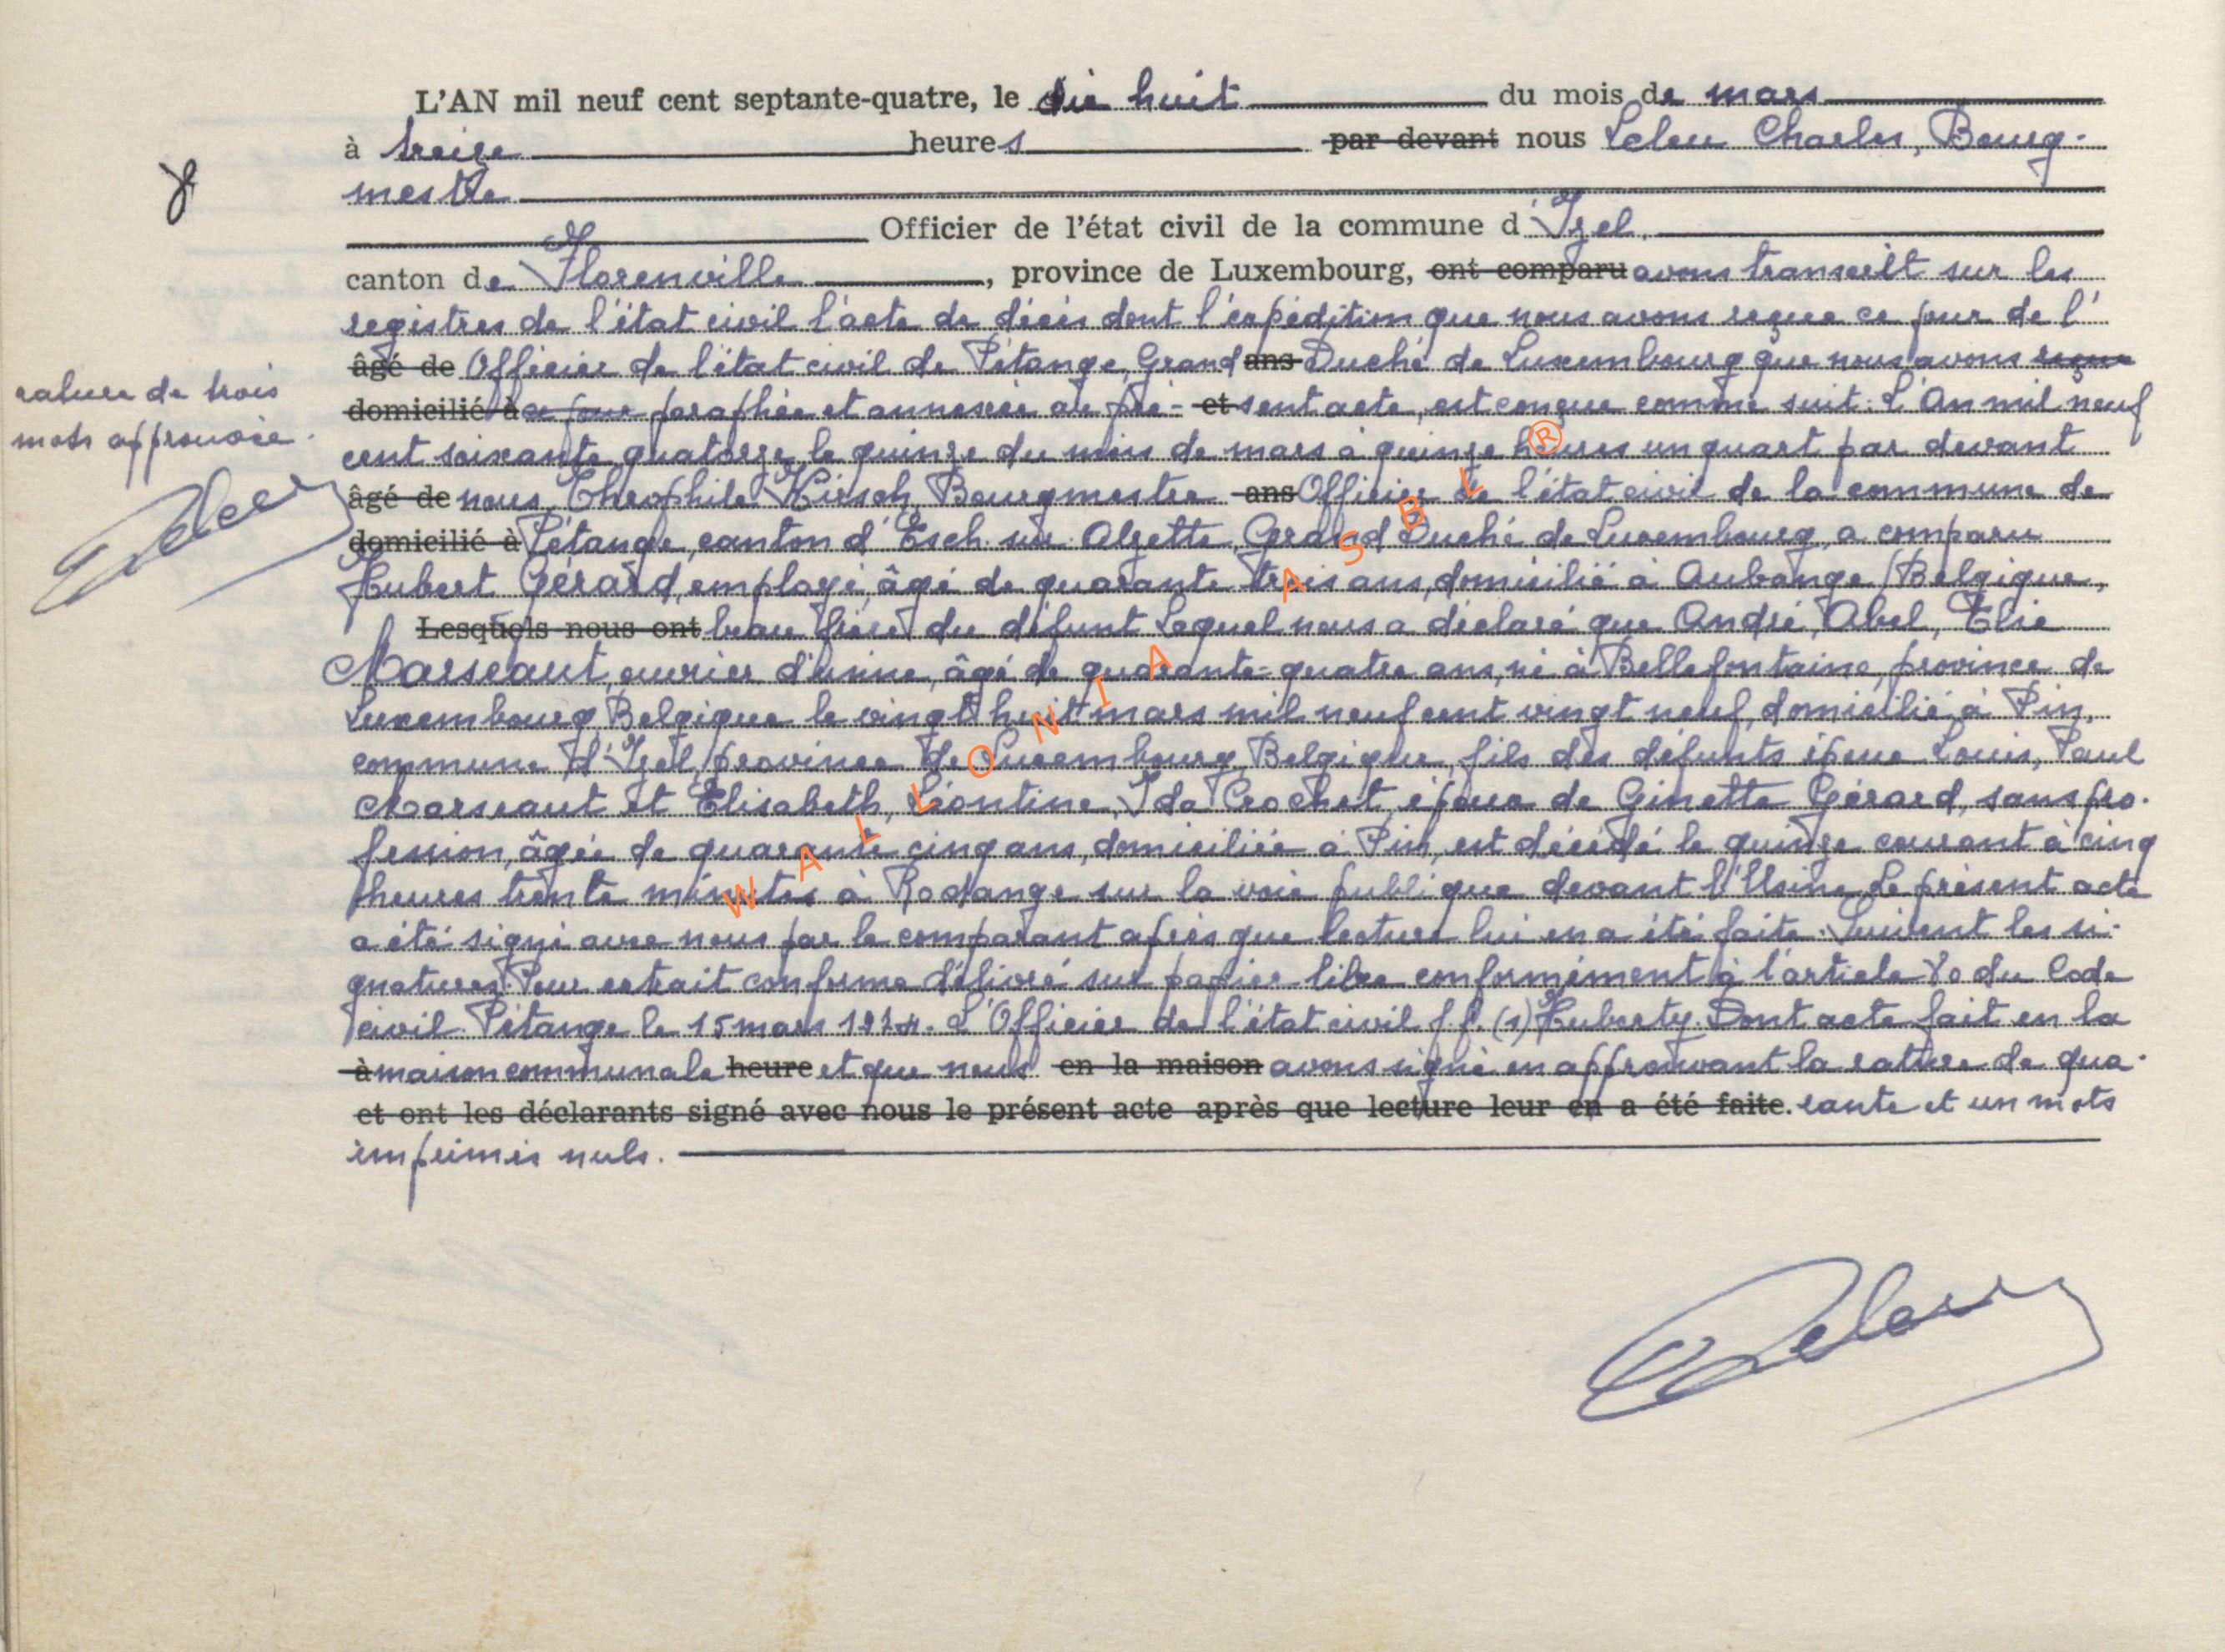 L'AN mil neuf cent septante-quatre, le dix huit du mois de mars
à treize heures par devant nous Leleu Charles, Bourg-
mestre
Officier de l'état civil de la commune d'Izel.
canton de Florenville, province de Luxembourg, ont comparu avons transcrit sur les
registres de l'état civil l'acte de décès dont l'expédition que nous avons reçue ce jour de l'
âgé de Officier de l'état civil de Pétange, Grand ans Duché de Luxembourg que nous avons reçue
rature de trois
domicilié à ce jour paraphée et annexée au pré- et sent acte, est conçue comme suit: L'An mil neuf
mots approuvée.
cent soixante quatorze, le quinze du mois de mars à quinze heures un quart par devant
âgé de nous, Théophile Kirsch, Bourgmestre ans Officier de l'état civil de la commune de
Leleu
domicilié à Pétange, canton d'Esch-sur-Alzette, Grand Duché de Luxembourg, a comparu
Hubert Gérard, employé, âgé de quarante trois ans, domicilié à Aubange/Belgique,
Lesquels nous ont beau frère du défunt Lequel nous a déclaré que André, Abel, Elie
Marseaut, ouvrier d'usine, âgé de quarante-quatre ans, né à Bellefontaine, province de
Luxembourg Belgique le vingt huit mars mil neuf cent vingt neuf, domicilié à Pin,
commune d'Izel, province de Luxembourg, Belgique, fils des défunts époux Louis, Paul
Marseaut et Elisabeth, Léontine, Ida Crochet, époux de Ginette Gérard, sans pro-
fession, âgée de quarante cinq ans, domiciliée à Pin, est décédé le quinze courant à cinq
heures trente minutes à Rodange sur la voie publique devant l'Usine. Le présent acte
a été signé avec nous par le comparant après que lecture lui en a été faite. Suivent les si-
gnatures. Pour extrait conforme délivré sur papier libre conformément à l'article 80 du Code
civil. Pétange le 15 mars 1974. L'Officier de l'état civil f.f. (s) Huberty. Dont acte fait en la
à maison communale heure et que nous en la maison avons signé en approuvant la rature de qua-
et ont les déclarants signé avec nous le présent acte après que lecture leur en a été faite. rante et un mots
imprimés nuls.
Leleu
WALLONIA ASBL ®